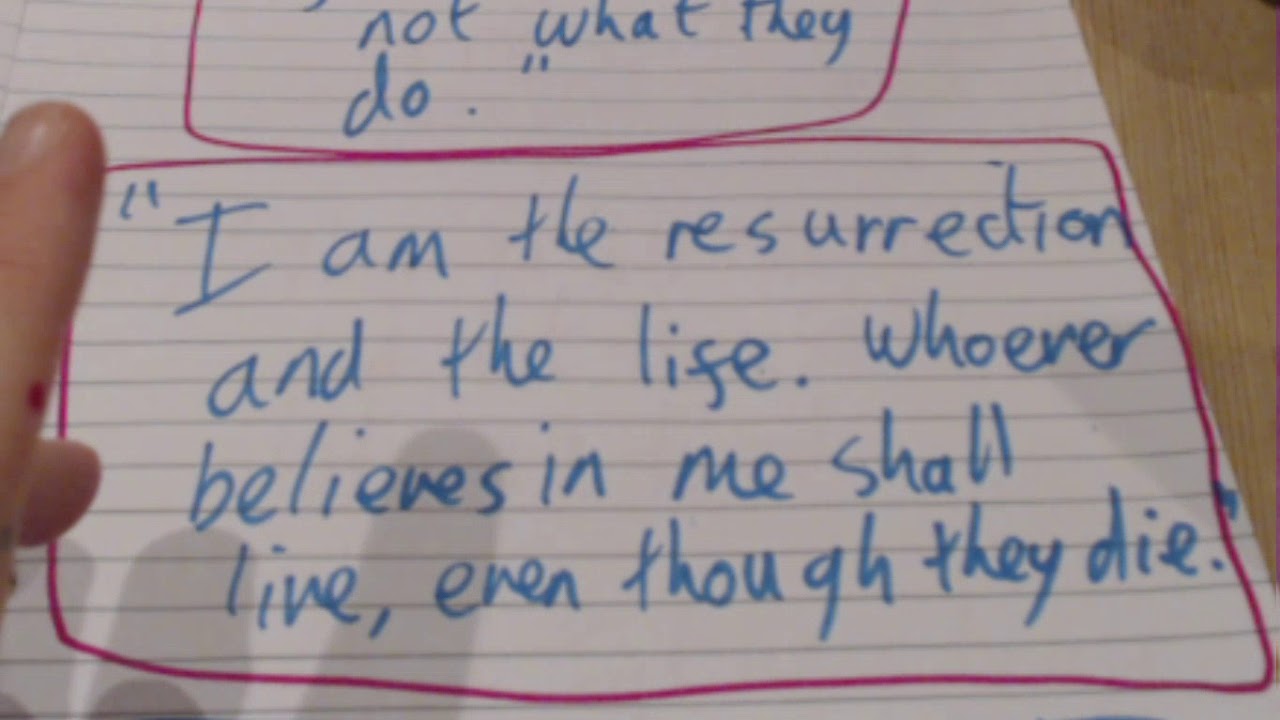 not what they
do."
"I am the resurrection
and the life. Whoever
believes in me shall
live, even though they die."